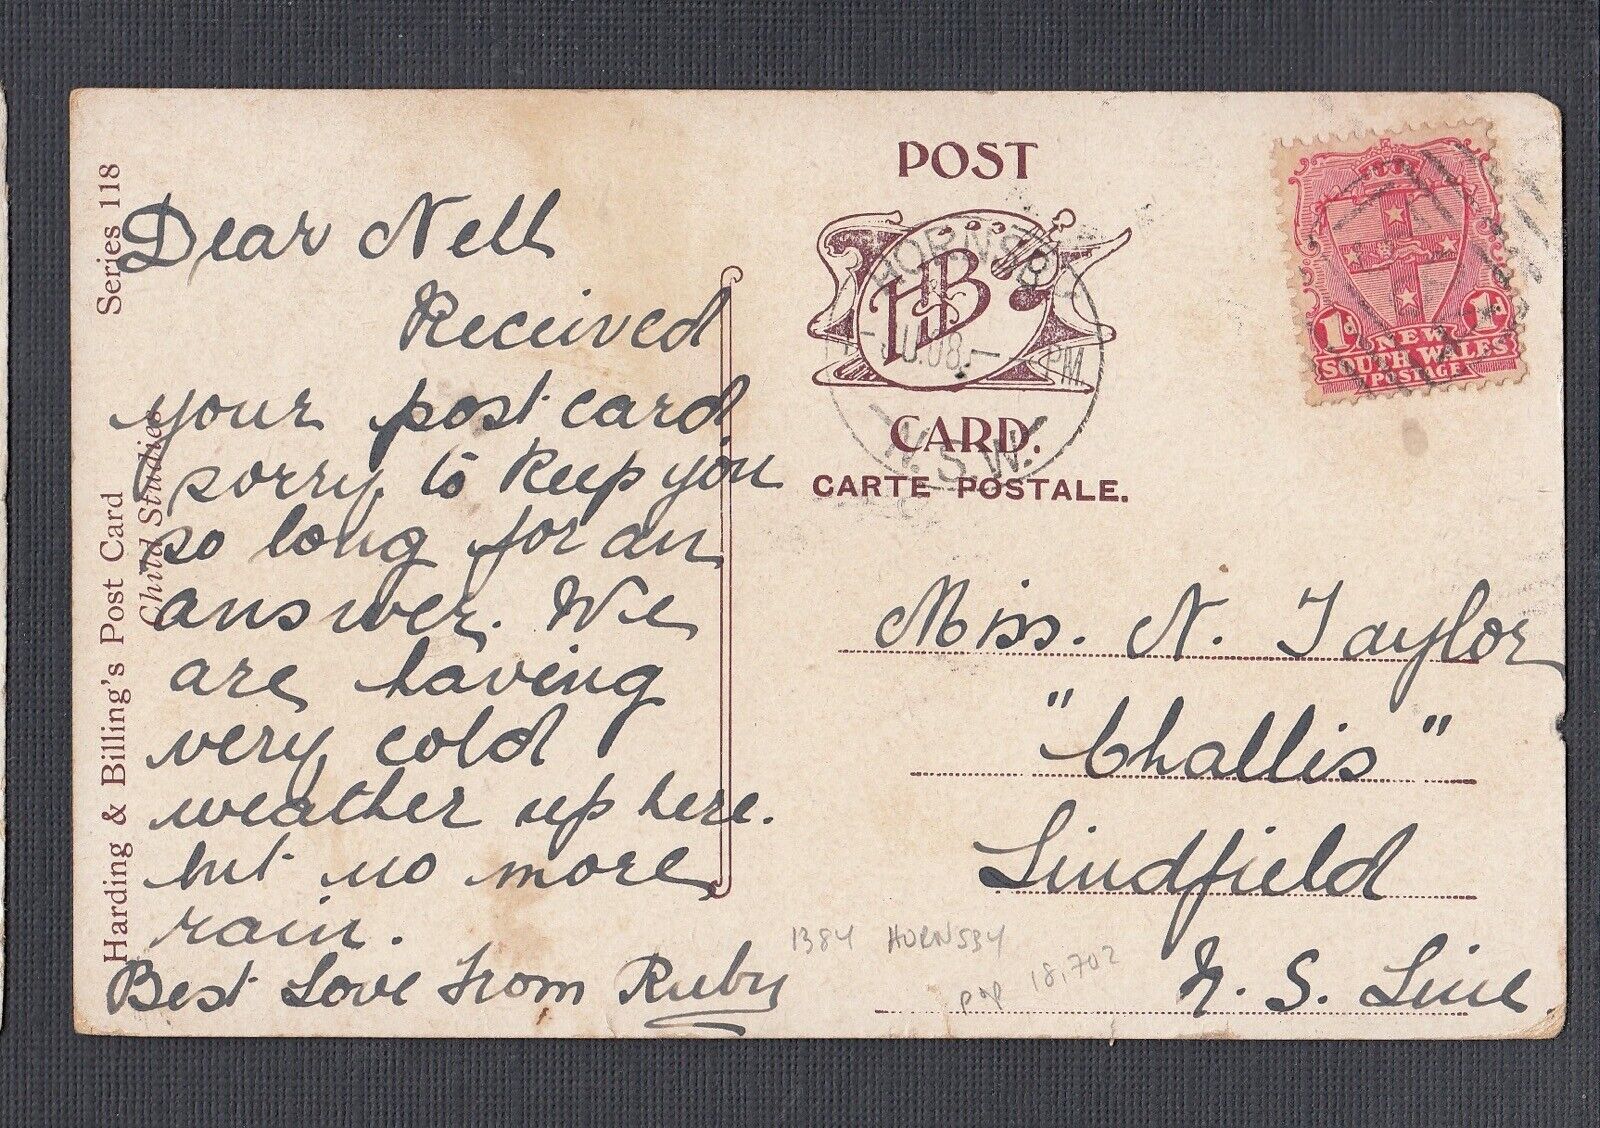 Series 118
Child Studies
Harding & Billing's Post Card
Dear Nell
Received
your post card
sorry to keep you
so long for an
answer. We
are having
very cold
weather up here.
but no more
rain.
Best Love from Ruby
POST
H.B
CARD.
CARTE POSTALE.
HORNSBY
JU.08
PM
N.S.W.
1d 1d
NEW
SOUTH WALES
POSTAGE
Miss. N. Taylor
"Challis"
Lindfield
N. S. Line
1384 HORNSBY
pop 18,702